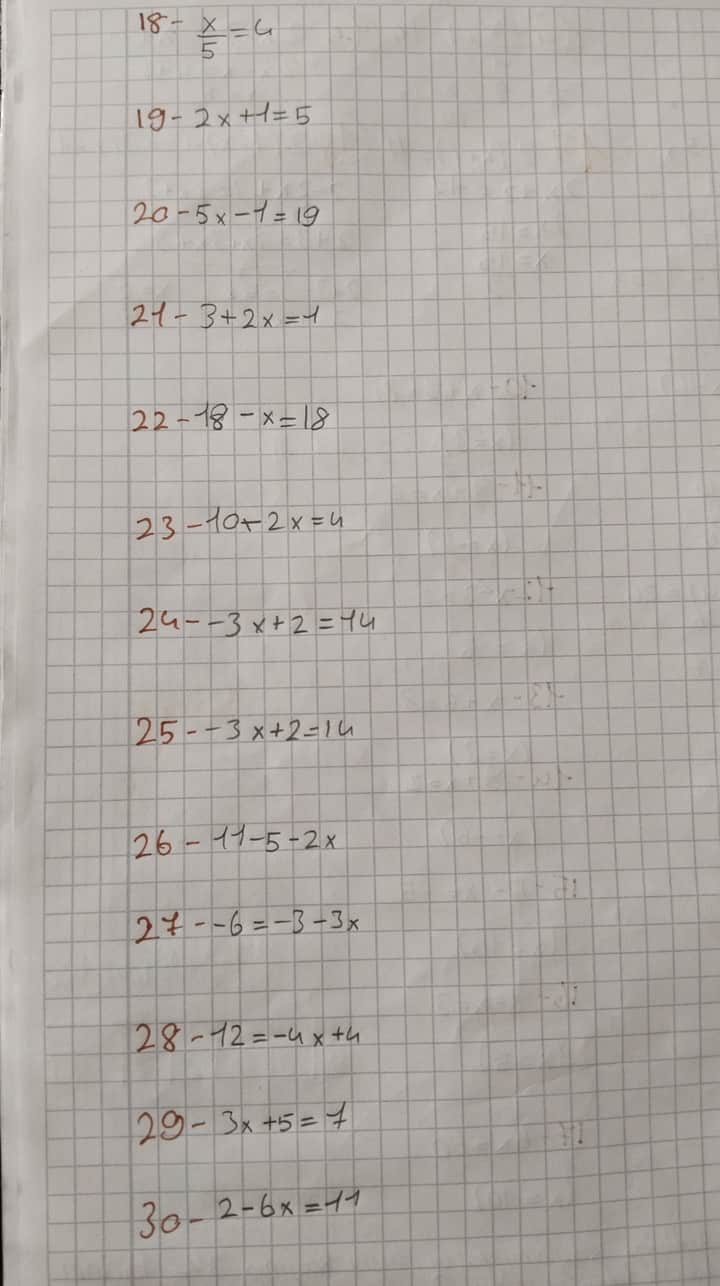 18- x/5 = 4
19- 2x+1=5
20-5x-1=19
21- 3+2x=1
22-18-x=18
23-10+2x=4
24--3x+2=14
25--3x+2=14
26-11-5-2x
27--6=-3-3x
28-12=-4x+4
29-3x+5=7
30-2-6x=11